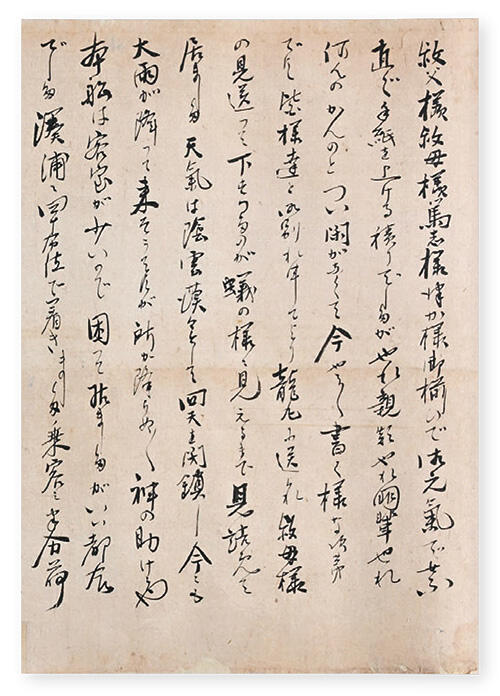 叔父様叔母様篤志様 様御揃ひで御元氣で
直ぐ手紙を上げる積りでしたがやれ親類やれ朋輩やれ
何んのかんのとつい閑がなくて今やうやく書く様な次第
でした皆様達と御別れ申してより 送られ叔母様
の見送って下さるのが蟻の様に見えるまで見詰めて
居りました天氣は陰雲漠々として 閉鎖し今にも
大雨が降って来そうでしたが所が降らぬ神の助けや
本船は客室が少いので困って居ましたがいい都合
でした 浦に四十分位で着きました乗客と手荷